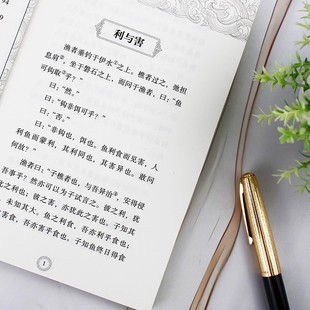 利与害
渔者垂钓于伊水①之上。樵者过之，弛担
息肩②，坐于磐石之上，而问于渔者，曰：“鱼
可钩取③乎？”
曰：“然。”
曰：“钩非饵可乎？”
曰：“否。”
曰：“非钩也，饵也。鱼利食而见害，人
利鱼而蒙利，其利同也，其害异也。敢问
何故？”
渔者曰：“子樵者也，与吾异治④，安得侵
吾事乎？然亦可以为子试言之。彼之利，犹
此之利也；彼之害，亦犹此之害也。子知其
，未知其大。鱼之利食，吾亦利乎食也；
害食，吾亦害乎食也。子知鱼终日得食
1
94